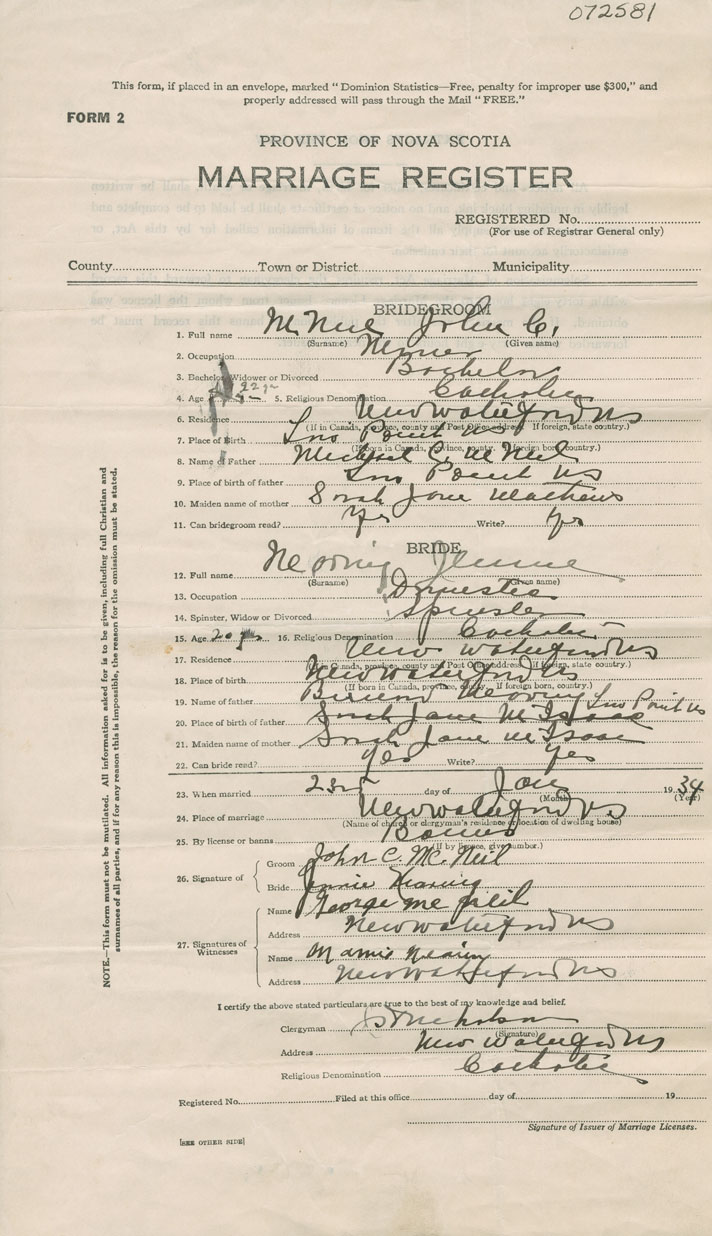 072581
This form, if placed in an envelope, marked "Dominion Statistics—Free, penalty for improper use $300," and
properly addressed will pass through the Mail "FREE."
FORM 2
PROVINCE OF NOVA SCOTIA
MARRIAGE REGISTER
REGISTERED No.
(For use of Registrar General only)
County Town or District Municipality
BRIDEGROOM
1. Full name McNeil John C.
(Surname) (Given name)
2. Occupation Miner
3. Bachelor, Widower or Divorced Bachelor
4. Age 22 5. Religious Denomination Catholic
6. Residence New Waterford NS
(If in Canada, province, county and Post Office address. If foreign, state country.)
7. Place of Birth Point
(If born in Canada, province, county. If foreign born, country.)
8. Name of Father Michael C. McNeil
9. Place of birth of father Point NS
10. Maiden name of mother Sarah Jane Mathews
11. Can bridegroom read? Yes Write? Yes
BRIDE
12. Full name Nearing Jennie
(Surname) (Given name)
13. Occupation Domestic
14. Spinster, Widow or Divorced Spinster
15. Age 20 yrs 16. Religious Denomination Catholic
17. Residence New Waterford NS
(If in Canada, province, county and Post Office address. If foreign, state country.)
18. Place of birth New Waterford NS
(If born in Canada, province, county. If foreign born, country.)
19. Name of father Nearing
20. Place of birth of father Sarah Jane McIsaac Point NS
21. Maiden name of mother Sarah Jane McIsaac
22. Can bride read? Yes Write? Yes
23. When married 23rd day of Jan 1934
(Month) (Year)
24. Place of marriage New Waterford NS
(Name of church or clergyman's residence or location of dwelling house)
25. By license or banns Banns
(If by licence, give number.)
26. Signature of Groom John C. McNeil
Bride Jennie Nearing
27. Signatures of Witnesses Name George McNeil
Address New Waterford NS
Name Mamie Nearing
Address New Waterford NS
I certify the above stated particulars are true to the best of my knowledge and belief.
Clergyman Nicholson
(Signature)
Address New Waterford NS
Religious Denomination Catholic
Registered No. Filed at this office day of 19
Signature of Issuer of Marriage Licenses.
[SEE OTHER SIDE]
NOTE.—This form must not be mutilated. All information asked for is to be given, including full Christian and
surnames of all parties, and if for any reason this is impossible, the reason for the omission must be stated.